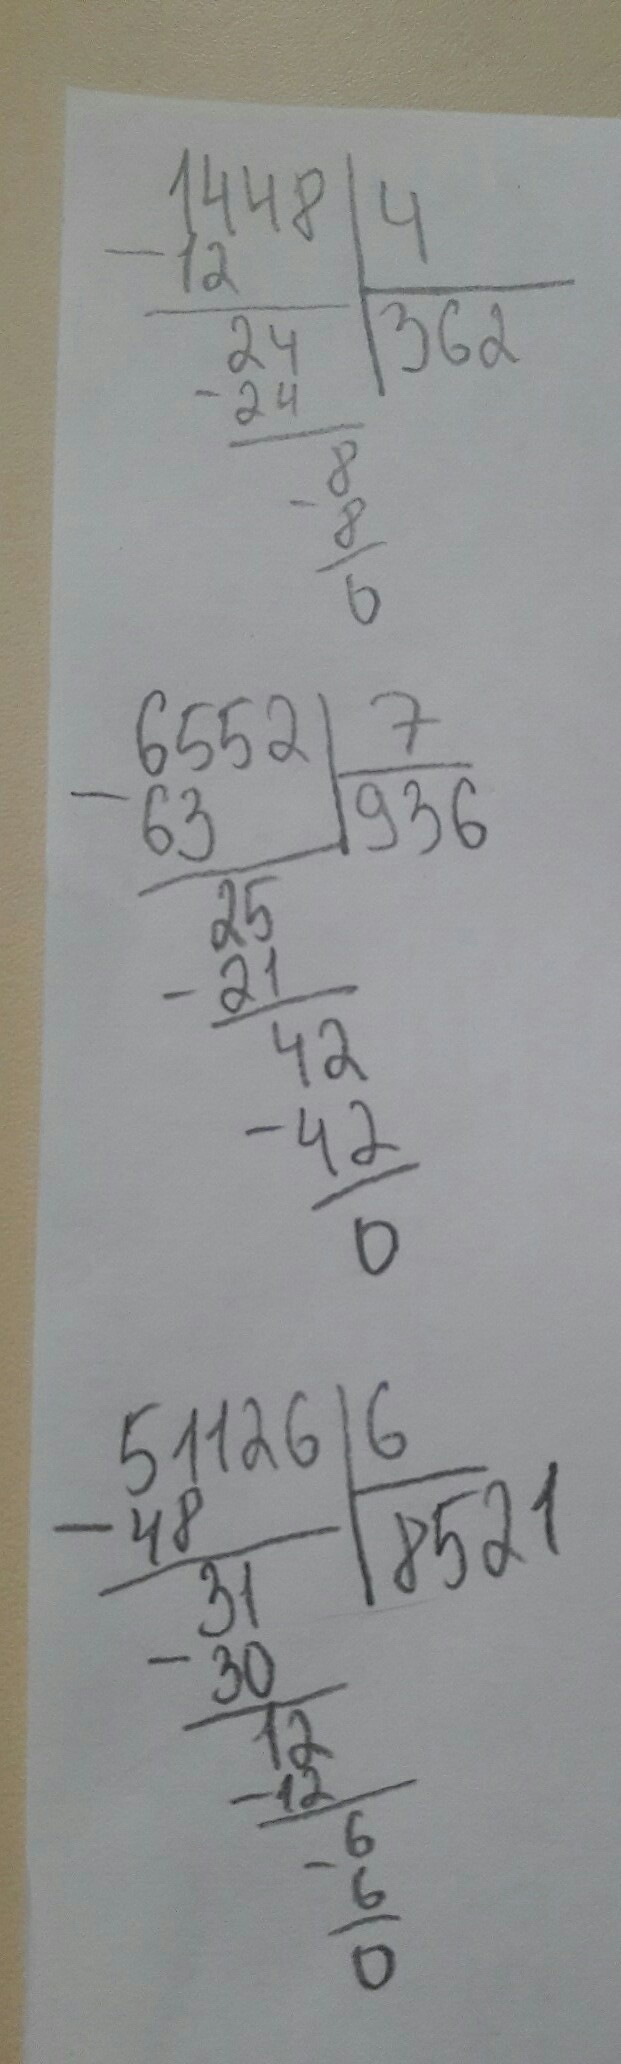 1448 | 4
-12
362
24
-24
8
-8
0
6552 | 7
-63
936
25
-21
42
-42
0
51126 | 6
-48
8521
31
-30
12
-12
6
-6
0